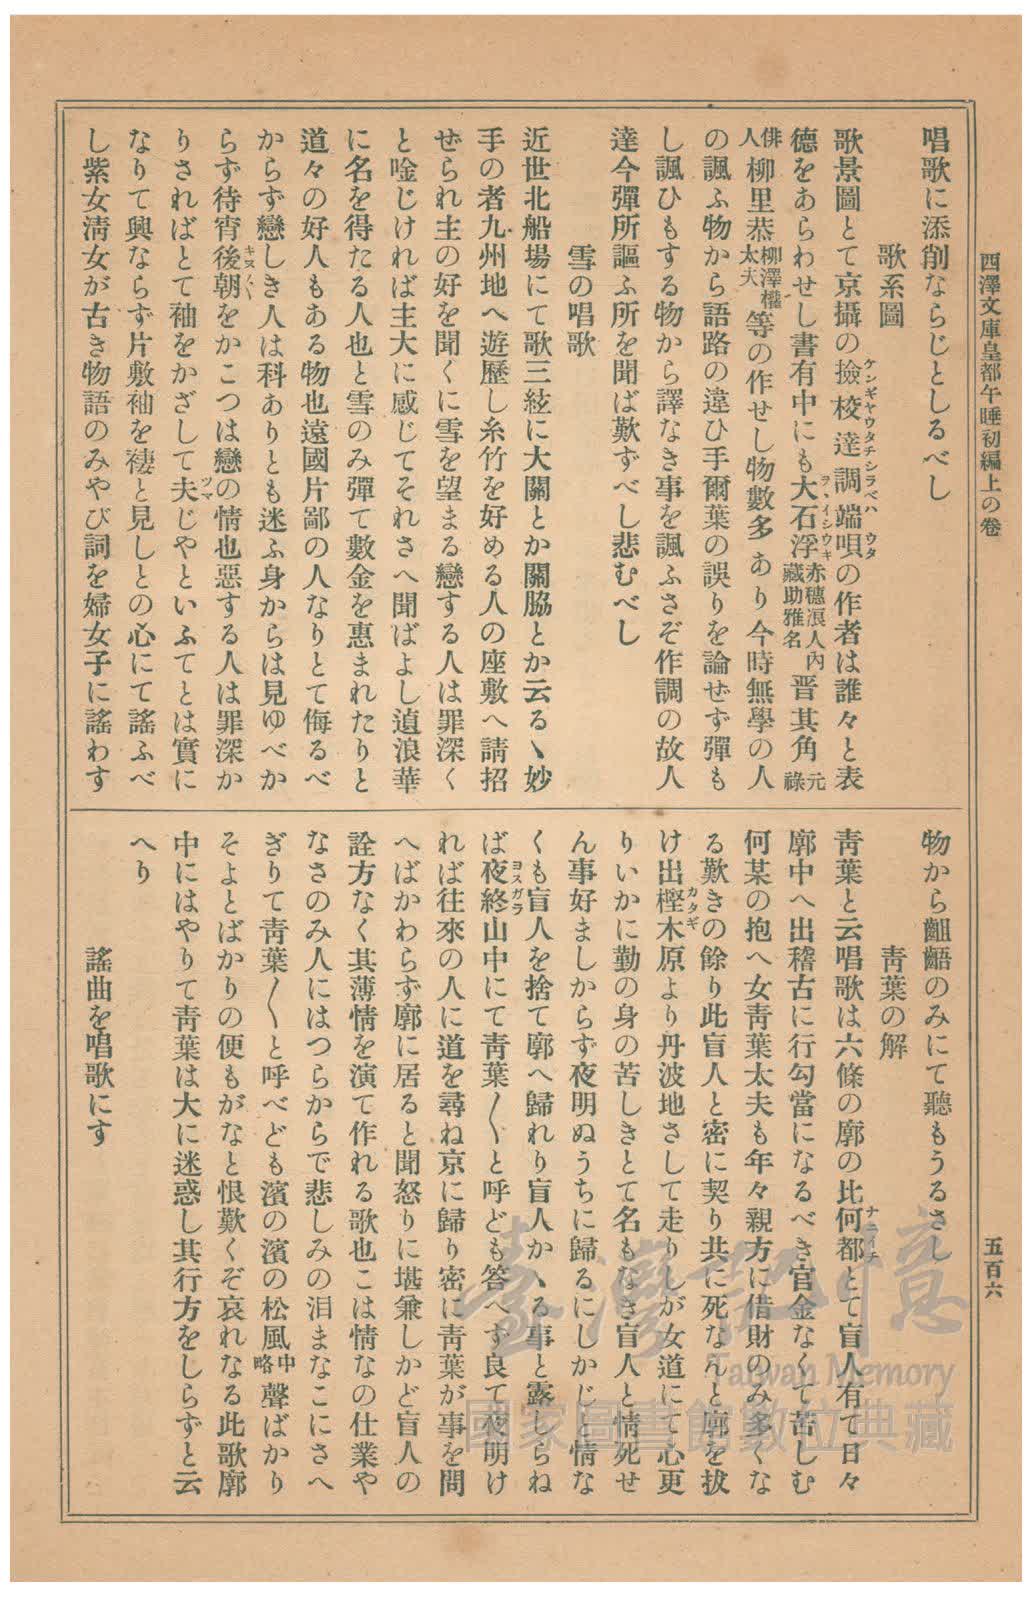 西澤文庫皇都午睡初編上の卷
五百六
唱歌に添削ならじとしるべし
歌系圖
歌景圖とて京攝の撿挍達調端唄の作者は誰々と表
ケンギヤウタチシラベハウタ
德をあらわせし書有中にも大石浮赤穗浪人內藏助雅名晋其角元祿
ヲヽイシウキ
俳人柳里恭柳澤權太夫等の作せし物數多あり今時無學の人
の諷ふ物から語路の違ひ手爾葉の誤りを論せず彈も
し諷ひもする物から譯なき事を諷ふさぞ作調の故人
達今彈所謳ふ所を聞ば歎ずべし悲むべし
雪の唱歌
近世北船場にて歌三絃に大關とか關脇とか云るゝ妙
手の者九州地へ遊歷し糸竹を好める人の座敷へ請招
せられ主の好を聞くに雪を望まる戀する人は罪深く
と唫じければ主大に感じてそれさへ聞ばよし遉浪華
に名を得たる人也と雪のみ彈て數金を惠まれたりと
道々の好人もある物也遠國片鄙の人なりとて侮るべ
からず戀しき人は科ありとも迷ふ身からは見ゆべか
らず待宵後朝をかこつは戀の情也惡する人は罪深か
キヌ〴〵
りさればとて袖をかざして夫じやといふてとは實に
ツマ
なりて興ならず片敷袖を褄と見しとの心にて謠ふべ
し紫女淸女が古き物語のみやび詞を婦女子に謠わす
物から齟齬のみにて聽もうるさし
靑葉の解
靑葉と云唱歌は六條の廓の比何都とて盲人有て日々
ナニイチ
廓中へ出稽古に行勾當になるべき官金なくて苦しむ
何某の抱へ女靑葉太夫も年々親方に借財のみ多くな
る歎きの餘り此盲人と密に契り共に死なんと廓を拔
け出樫木原より丹波地さして走りしが女道にて心更
カタギ
りいかに勤の身の苦しきとて名もなき盲人と情死せ
ん事好ましからず夜明ぬうちに歸るにしかじと情な
くも盲人を捨て廓へ歸れり盲人かゝる事と露しらね
ば夜終山中にて靑葉〳〵と呼ども答へず良て夜明け
ヨスガラ
れば往來の人に道を尋ね京に歸り密に靑葉が事を問
へばかわらず廓に居ると聞怒りに堪兼しかど盲人の
詮方なく其薄情を演て作れる歌也こは情なの仕業や
なさのみ人にはつらからで悲しみの泪まなこにさへ
ぎりて靑葉〳〵と呼べども濱の濱の松風中略聲ばかり
そよとばかりの便もがなと恨歎くぞ哀れなる此歌廓
中にはやりて靑葉は大に迷惑し其行方をしらずと云
へり
謠曲を唱歌にす
臺灣記憶
Taiwan Memory
國家圖書館數位典藏